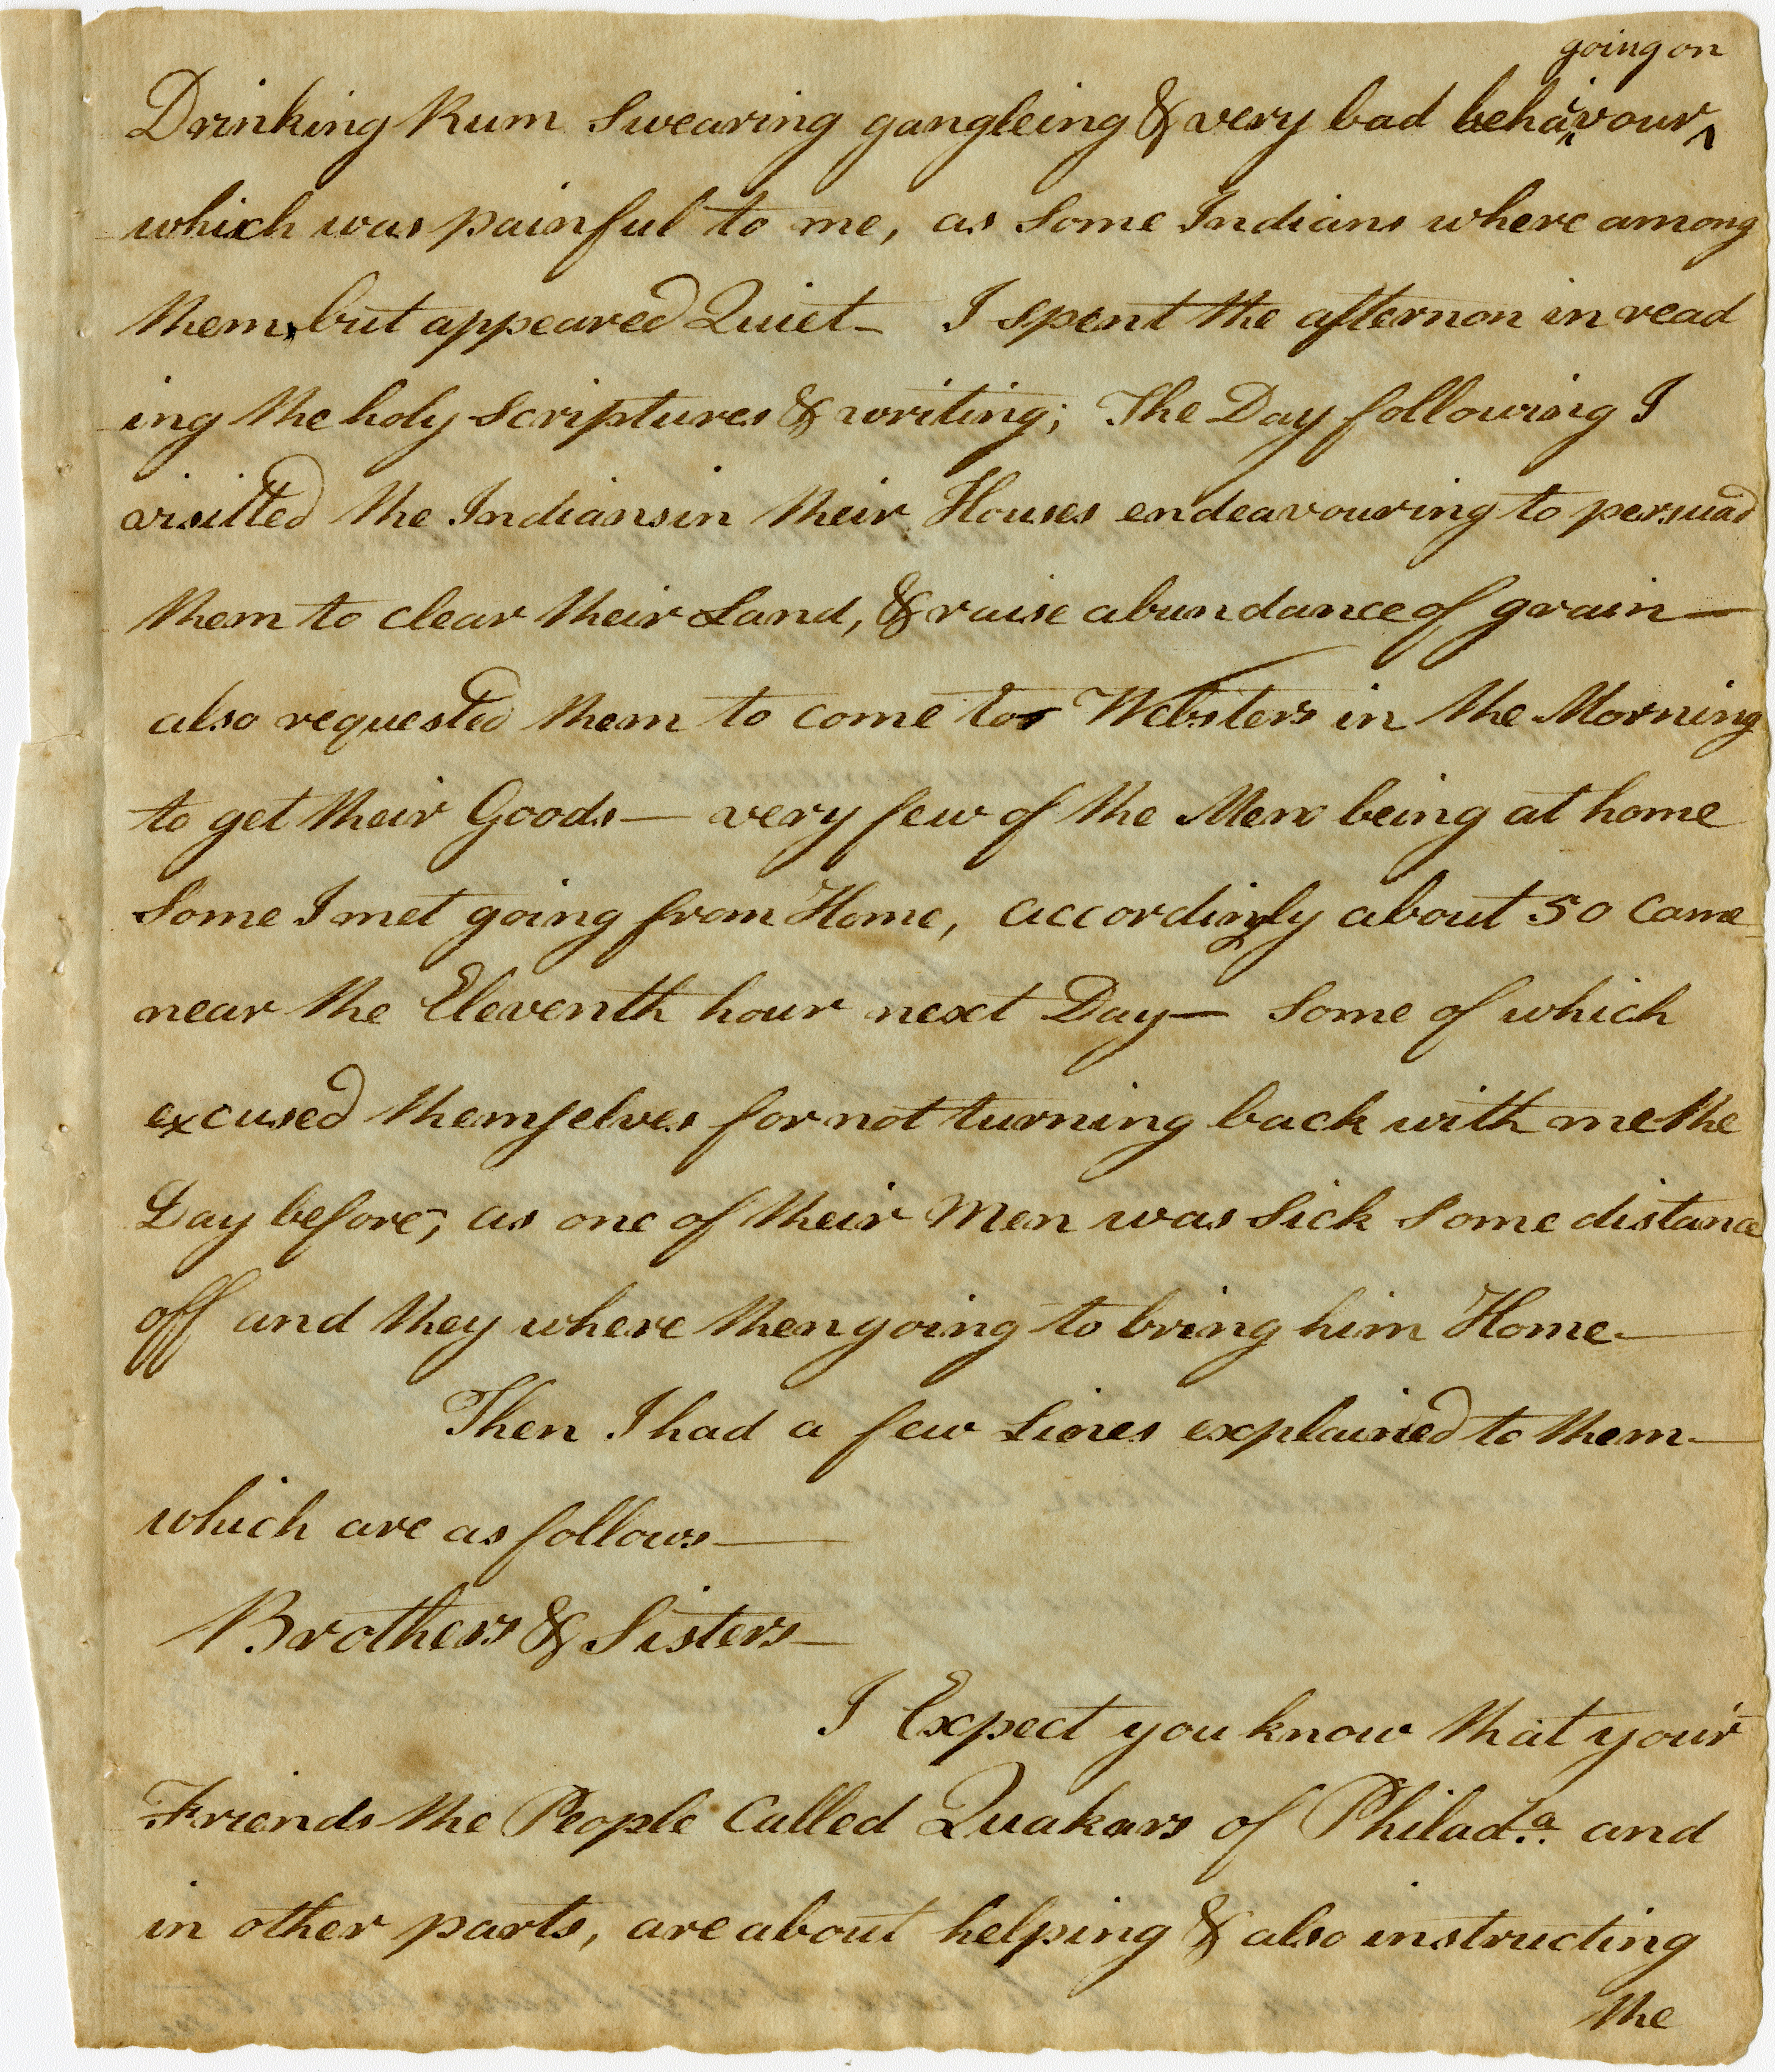 going on
Drinking Rum Swearing gangleing & very bad behaivour
which was painful to me, as Some Indians where among
them, but appeared Quiet_ I spent the afternon in read
ing the holy Scriptures & writing; The Day following I
visitted the Indians in their Houses endeavouring to persuad
them to clear their Land, & raise abundance of grain—
also requested them to come to Websters in the Morning
to get their Goods— very few of the Men being at home
Some I met going from Home, accordingly about 50 Came
near the Eleventh hour next Day— Some of which
excused themselves for not turning back with me the
Day before, as one of their Men was Sick Some distance
off and they where then going to bring him Home—
Then I had a few Lines explained to them—
which are as follows—
Brothers & Sisters—
I Expect you know that your
Friends the People Called Quakars of Philad.a and
in other parts, are about helping & also instructing
the